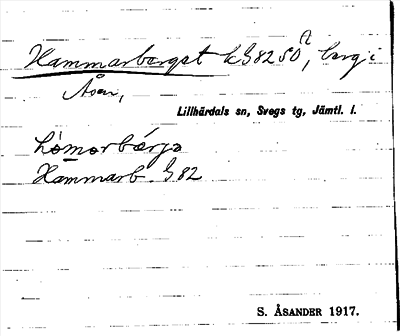 Hammarberget kG8250, berg i
Åsen,
Lillhärdals sn, Svegs tg, Jämtl. l.
Hammarb. G82
S. ÅSANDER 1917.